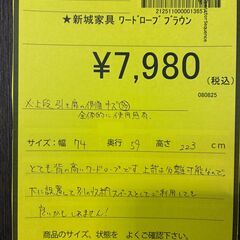 ★新城家具 ワードローブ ブラウン
2125110000013651
¥7,980
(税込)
080825
×上段 引き扉の側面キズ有
全体的に使用感有
サイズ:幅 74 奥行 59 高さ 223 cm
とても背の高いワードローブです 上部は分離可能なので
下に設置して別の収納スペースとしてご利用しても
良いかもしれません!
サイズ、商品の状態を よくご確認下さい。